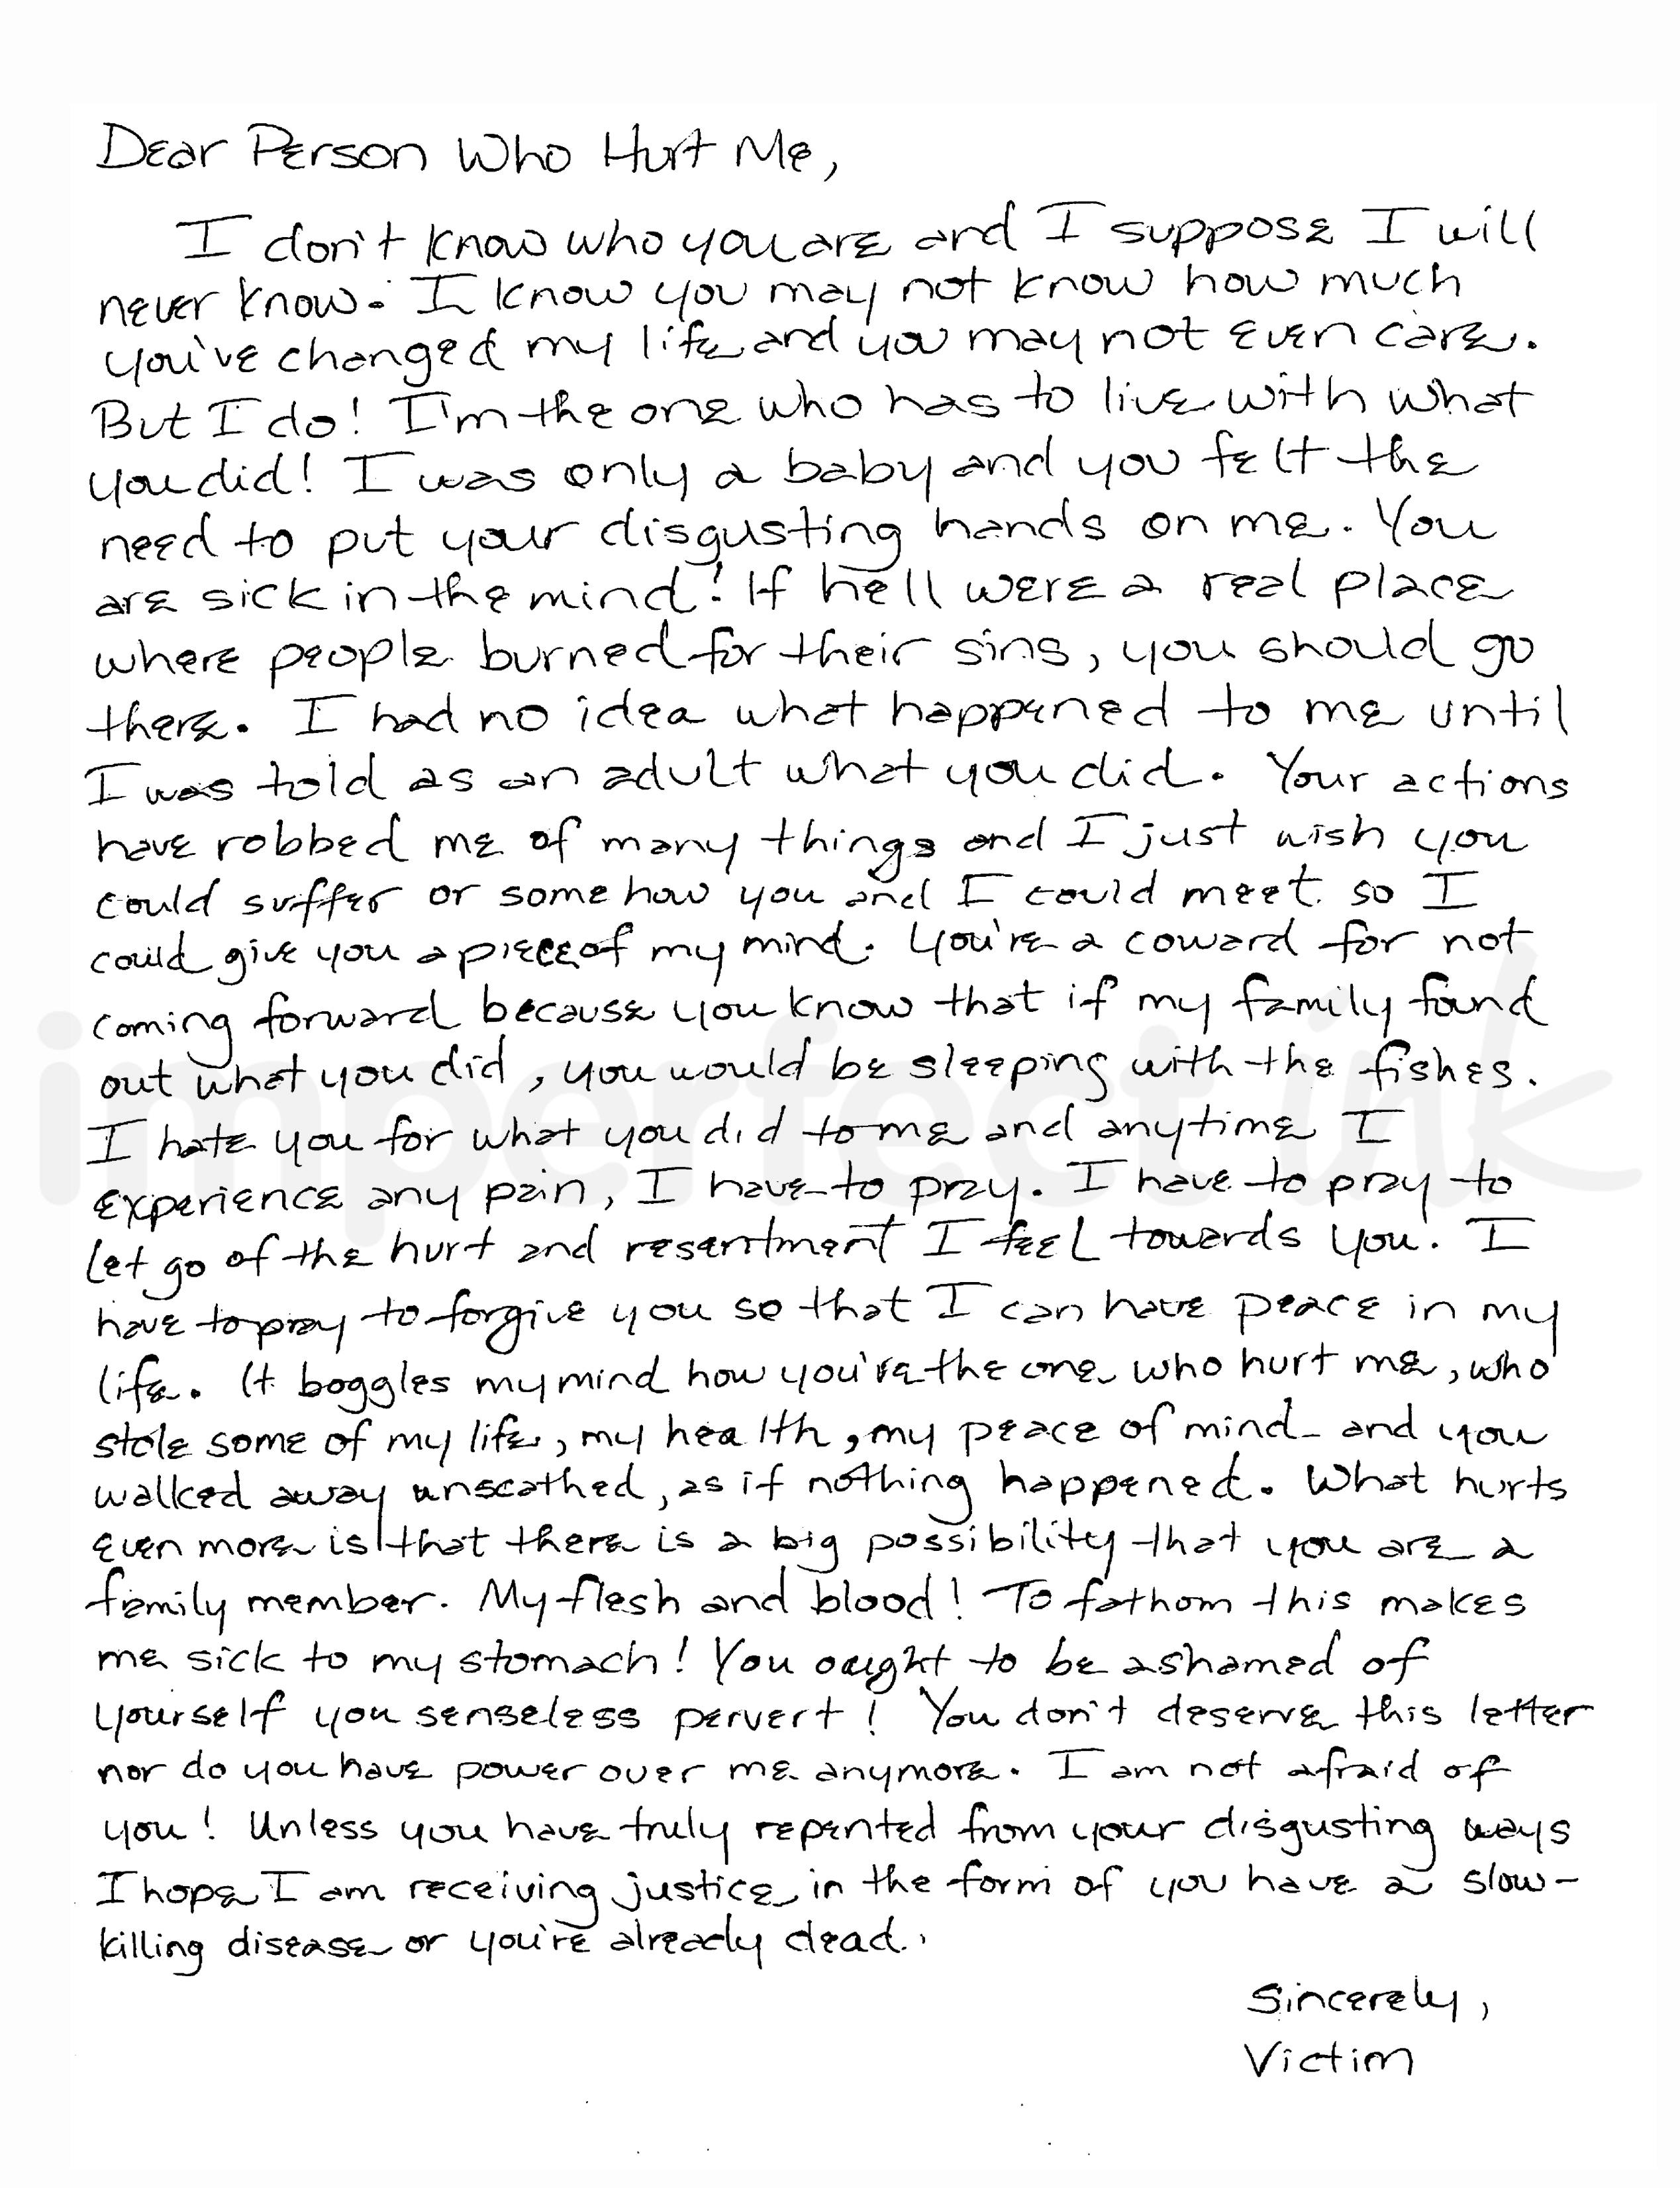 Dear Person Who Hurt Me,
I don't know who you are and I suppose I will
never know. I know you may not know how much
you've changed my life and you may not even care.
But I do! I'm the one who has to live with what
you did! I was only a baby and you felt the
need to put your disgusting hands on me. You
are sick in the mind! If hell were a real place
where people burned for their sins, you should go
there. I had no idea what happened to me until
I was told as an adult what you did. Your actions
have robbed me of many things and I just wish you
could suffer or some how you and I could meet so I
could give you a piece of my mind. You're a coward for not
coming forward because you know that if my family found
out what you did, you would be sleeping with the fishes.
I hate you for what you did to me and anytime I
experience any pain, I have to pray. I have to pray to
let go of the hurt and resentment I feel towards you. I
have to pray to forgive you so that I can have peace in my
life. It boggles my mind how you're the one who hurt me, who
stole some of my life, my health, my peace of mind - and you
walked away unscathed, as if nothing happened. What hurts
even more is that there is a big possibility that you are a
family member. My flesh and blood! To fathom this makes
me sick to my stomach! You ought to be ashamed of
yourself you senseless pervert! You don't deserve this letter
nor do you have power over me anymore. I am not afraid of
you! Unless you have truly repented from your disgusting ways
I hope I am receiving justice in the form of you have a slow-
killing disease or you're already dead.
Sincerely,
Victim
imperfect ink